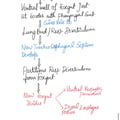 Ventral wall of Foregut just
at border with Pharyngeal Gut
Gives Rise to
Lung Bud / Resp. Diverticulum
Now Trachea Esophageal Septum
Develops
Partitions Resp Diverticulum
from Foregut
Ventral Respiratory
Dorsal Esophagus